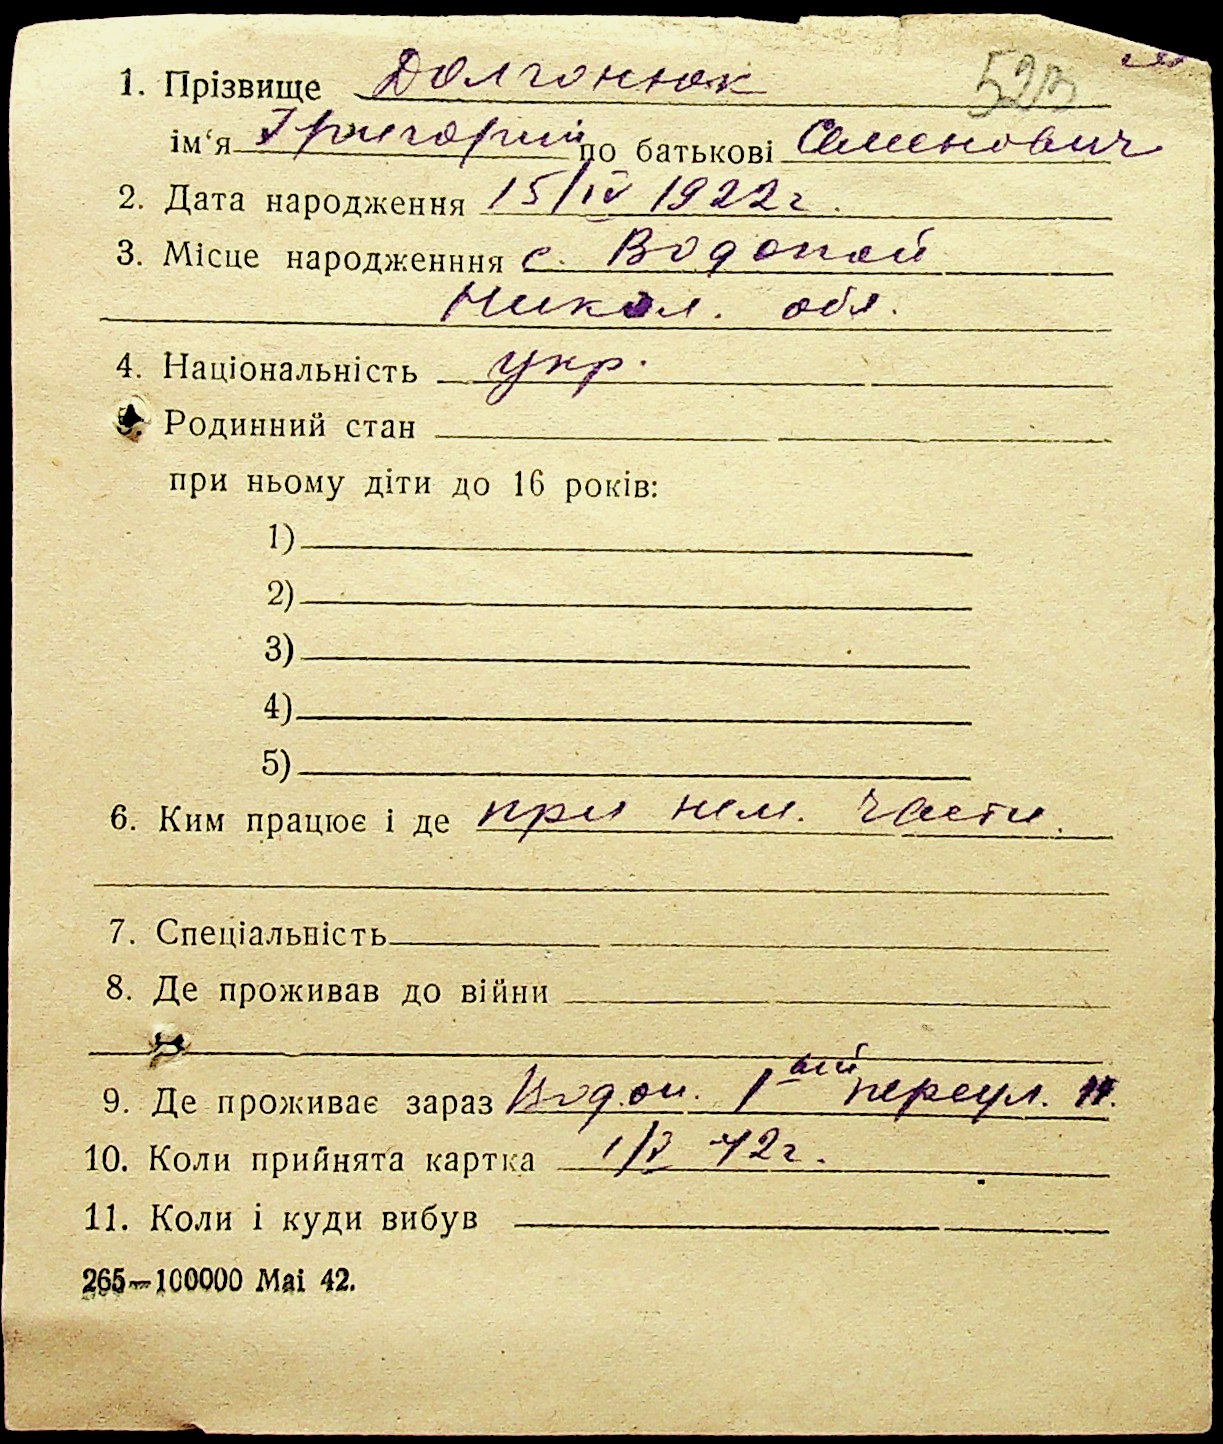 523
1. Прізвище Долгонюк
ім‘я Григорий по батькові Семенович
2. Дата народження 15/IV 1922 г.
3. Місце народженння с. Водопой
Никол. обл.
4. Національність укр.
5. Родинний стан
при ньому діти до 16 років:
1)
2)
3)
4)
5)
6. Ким працює і де при нем. части.
7. Спеціальність
8. Де проживав до війни
9. Де проживає зараз Водоп. 1ый переул.
10. Коли прийнята картка 42 г.
11. Коли і куди вибув
265—100000 Mai 42.